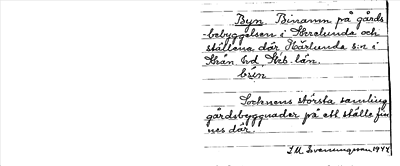 Byn. Binamn på gårds
bebyggelsen i Storelunda och
ställena där Härlunda s:n i
Skån. hd Skb. län.
byn
Socknens största samling
gårdsbyggnader på ett ställe fin
nes där.
J M Svenningsson 1944